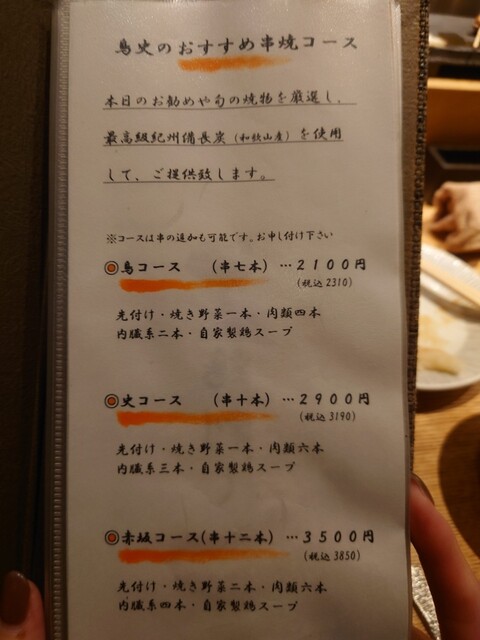 鳥史のおすすめ串焼コース
本日のお勧めや旬の焼物を厳選し、
最高級紀州備長炭（和歌山産）を使用
して、ご提供致します。
※コースは串の追加も可能です。お申し付け下さい
◎鳥コース （串七本） …2100円
（税込2310）
先付け・焼き野菜一本・肉類四本
内臓系二本・自家製鶏スープ
◎史コース （串十本） …2900円
（税込3190）
先付け・焼き野菜一本・肉類六本
内臓系三本・自家製鶏スープ
◎赤坂コース（串十二本） …3500円
（税込3850）
先付け・焼き野菜二本・肉類六本
内臓系四本・自家製鶏スープ